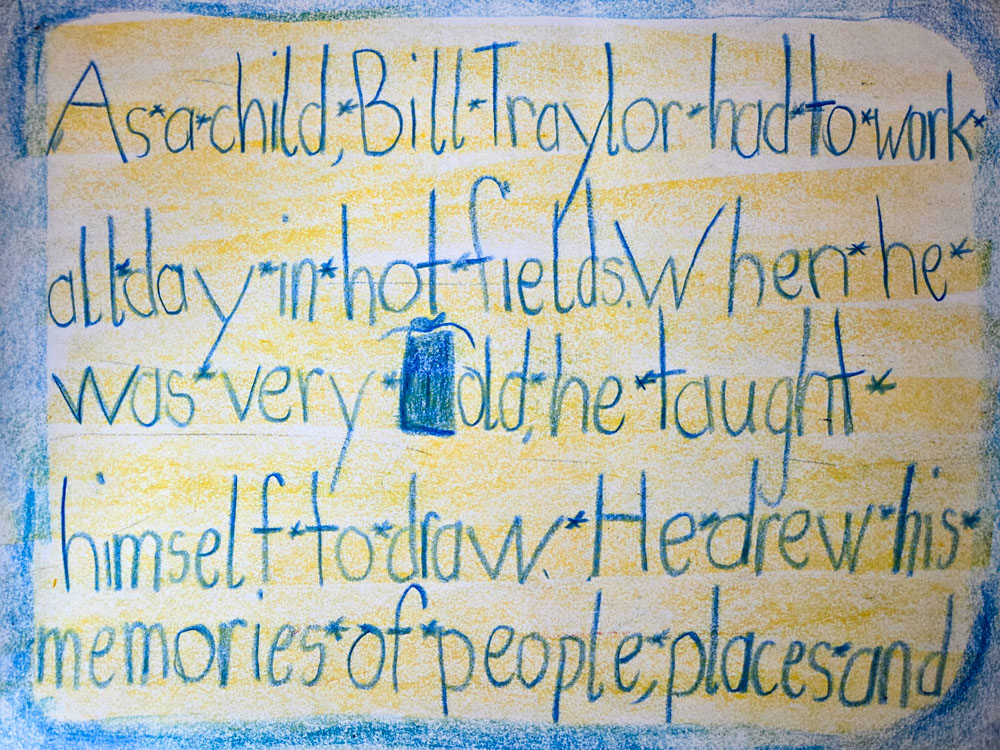 As a child, Bill Traylor had to work
all day in hot fields. When he
was very old, he taught
himself to draw. He drew his
memories of people, places and